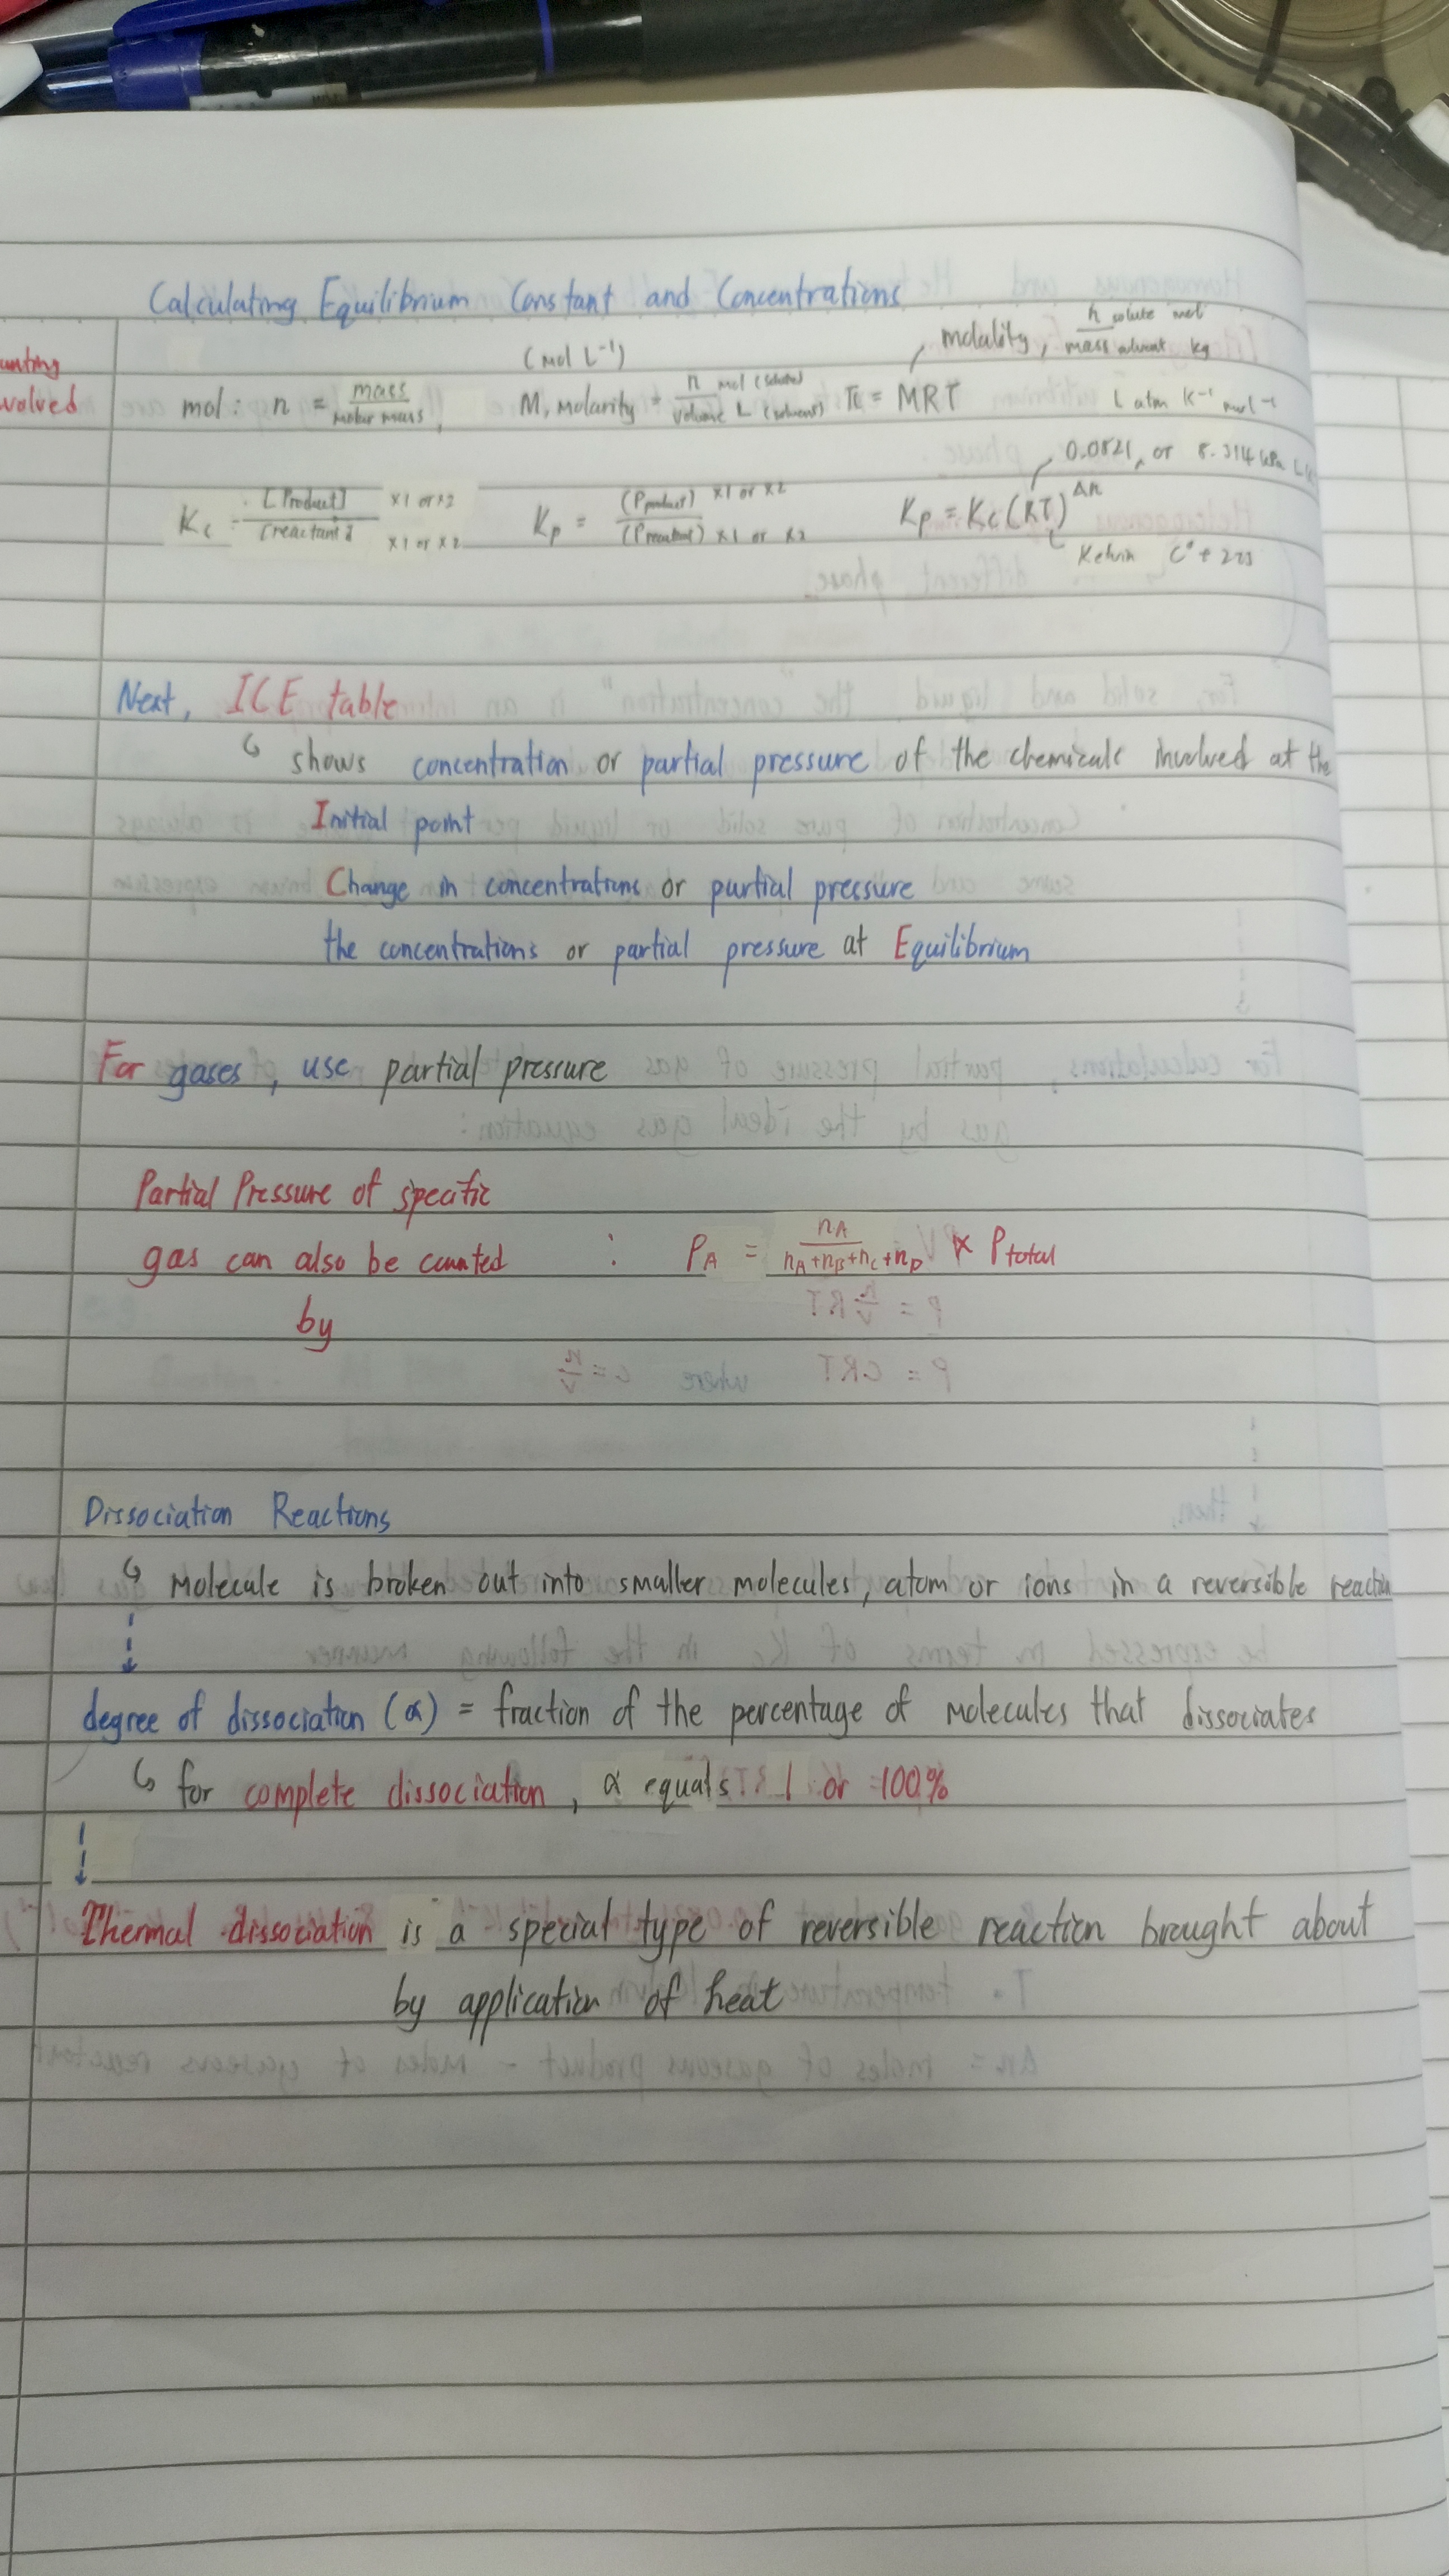 Calculating Equilibrium Constant and Concentrations
molality, n solute mol / mass solvent kg
(mol L⁻¹)
volved
mol : n = mass / molar mass, M, Molarity = n mol (solute) / volume L (solvent) π = MRT L atm K⁻¹ mol⁻¹
0.0821, or 8.314 kPa L
Kc = [Product] x1 or x2 / [reactant] x1 or x2 Kp = (Pproduct) x1 or x2 / (Preactant) x1 or x2 Kp = Kc(RT)^Δn
Kelvin C° + 273
Next, ICE table
↳ shows concentration or partial pressure of the chemicals involved at the
Initial point
Change in concentrations or partial pressure
the concentrations or partial pressure at Equilibrium
For gases, use partial pressure
Partial Pressure of specific
gas can also be counted : PA = nA / nA+nB+nC+nD × Ptotal
by
Dissociation Reactions
↳ Molecule is broken out into smaller molecules, atom or ions in a reversible reaction
degree of dissociation (α) = fraction of the percentage of molecules that dissociates
↳ for complete dissociation, α equals 1 or 100%
Thermal dissociation is a special type of reversible reaction brought about
by application of heat